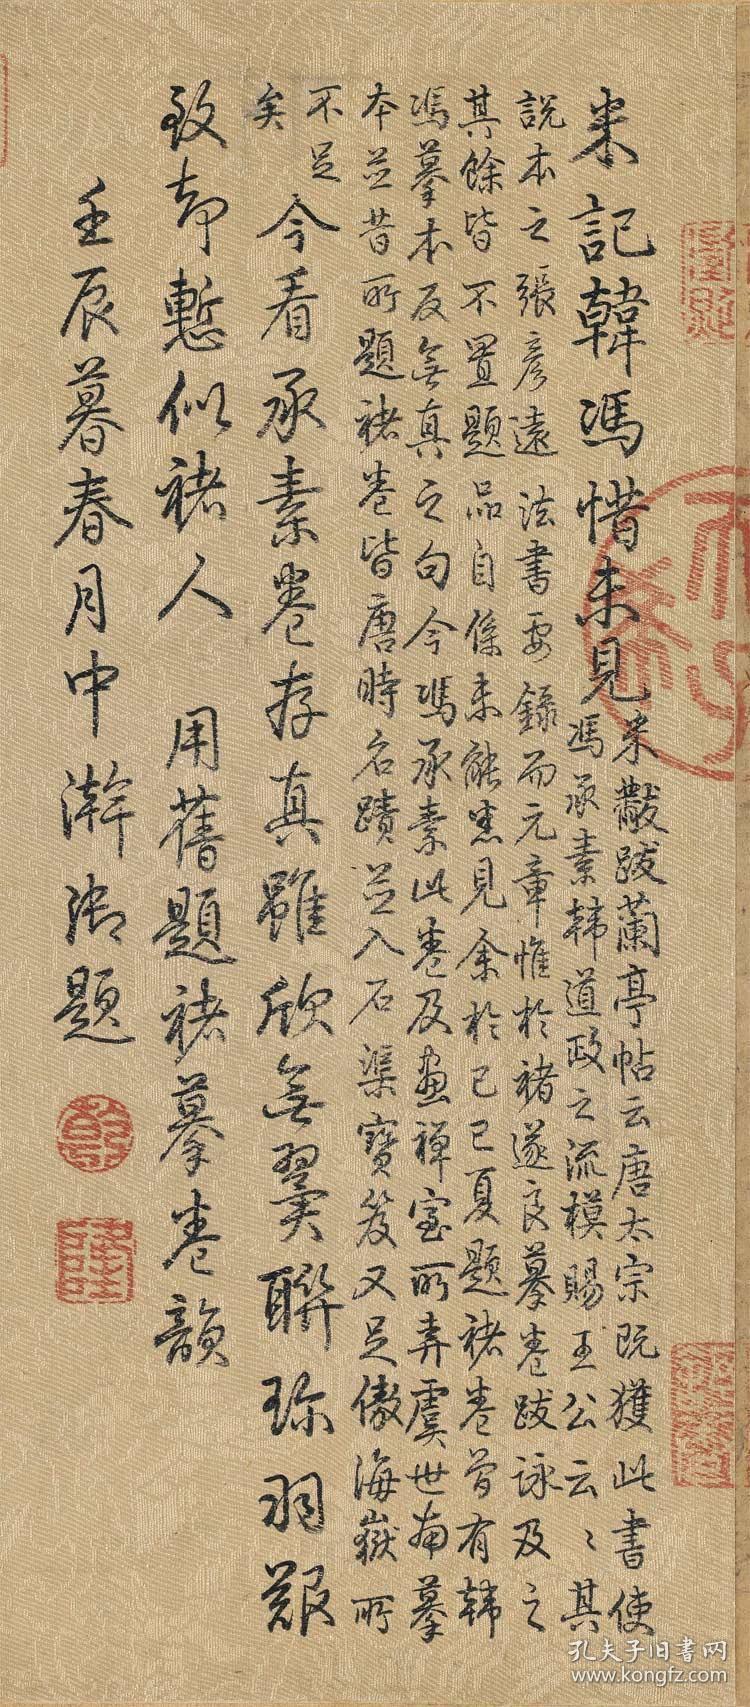 米記韓馮惜未見
米黻跋蘭亭帖云唐太宗既獲此書使
馮承素韓道政之流模賜王公云〻其
說本之張彥遠法書要錄而元章惟於褚遂良摹卷跋詠及之
其餘皆不置題品自係未能悉見余於己巳夏題褚卷曾有韓
馮摹本反無真之句今馮承素此卷及畫禪室所弆虞世南摹
本並昔所題褚卷皆唐時名蹟並入石渠寶笈又足傲海嶽所
不足
矣今看承素卷存真雖欣無翼聯珎羽艱
致却慙似褚人 用舊題褚摹卷韻
壬辰暮春月中澣御題
乾
隆
孔夫子旧书网
www.kongfz.com